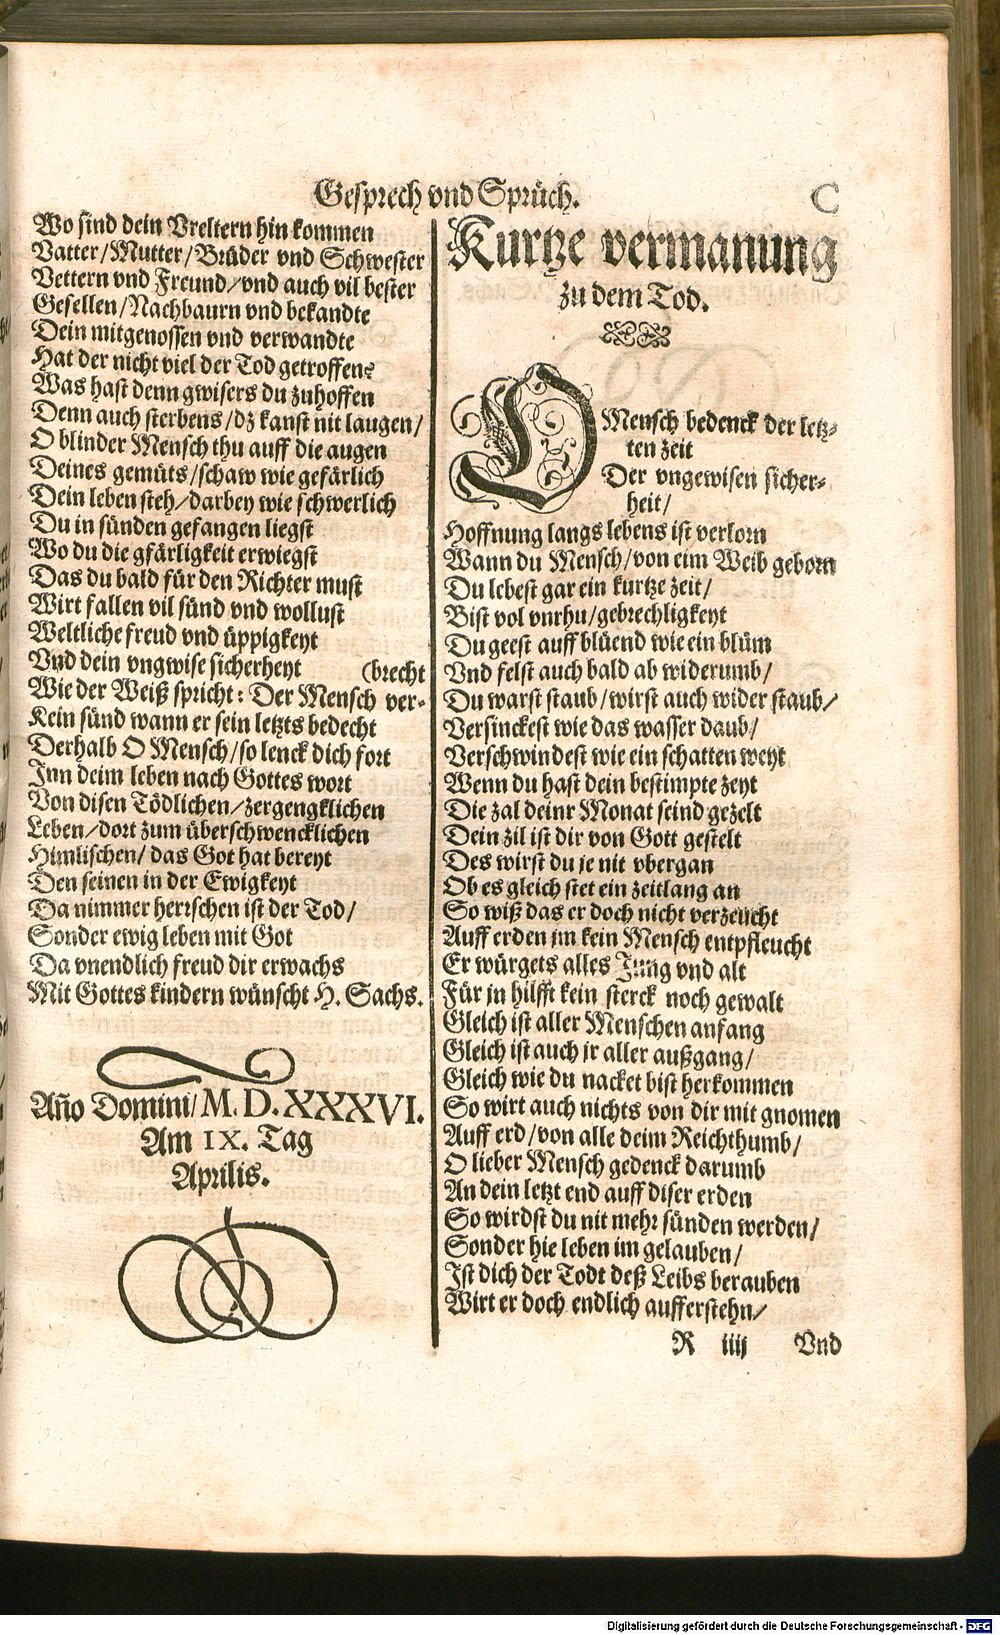 Gesprech vnd Sprüch. C
Wo sind dein Vreltern hin kommen
Vatter/Mutter/Brüder vnd Schwester
Vettern vnd Freund/vnd auch vil bester
Gesellen/Nachbaurn vnd bekandte
Dein mitgenossen vnd verwandte
Hat der nicht viel der Tod getroffen?
Was hast denn gwisers du zuhoffen
Denn auch sterbens/dz kanst nit laugen/
O blinder Mensch thu auff die augen
Deines gemüts/schaw wie gefärlich
Dein leben steh/darbey wie schwerlich
Du in sünden gefangen liegst
Wo du die gfärligkeit erwiegst
Das du bald für den Richter must
Wirt fallen vil sünd vnd wollust
Weltliche freud vnd üppigkeyt
Vnd dein vngwise sicherheyt (brecht
Wie der Weiß spricht: Der Mensch ver-
Kein sünd wann er sein letzts bedecht
Derhalb O Mensch/so lenck dich fort
Inn deim leben nach Gottes wort
Von disen Tödlichen/zergengklichen
Leben/dort zum überschwencklichen
Himlischen/das Got hat bereyt
Den seinen in der Ewigkeyt
Da nimmer herrschen ist der Tod/
Sonder ewig leben mit Got
Da vnendlich freud dir erwachs
Mit Gottes kindern wünscht H. Sachs.
Año Domini/M. D. XXXVI.
Am IX. Tag
Aprilis.
Kurtze vermanung
zu dem Tod.
O Mensch bedenck der letz-
ten zeit
Der vngewisen sicher-
heit/
Hoffnung langs lebens ist verlorn
Wann du Mensch/von eim Weib geborn
Du lebest gar ein kurtze zeit/
Bist vol vnrhu/gebrechligkeyt
Du geest auff blüend wie ein blüm
Vnd felst auch bald ab widerumb/
Du warst staub/wirst auch wider staub/
Versinckest wie das wasser daub/
Verschwindest wie ein schatten weyt
Wenn du hast dein bestimpte zeyt
Die zal deinr Monat seind gezelt
Dein zil ist dir von Gott gestelt
Des wirst du je nit vbergan
Ob es gleich stet ein zeitlang an
So wiß das er doch nicht verzeucht
Auff erden jm kein Mensch entpfleucht
Er würgets alles Jung vnd alt
Für jn hilfft kein sterck noch gewalt
Gleich ist aller Menschen anfang
Gleich ist auch jr aller außgang/
Gleich wie du nacket bist herkommen
So wirt auch nichts von dir mit gnomen
Auff erd/von alle deim Reichthumb/
O lieber Mensch gedenck darumb
An dein letzt end auff diser erden
So wirdst du nit mehr sünden werden/
Sonder hie leben im gelauben/
Ist dich der Todt deß Leibs berauben
Wirt er doch endlich aufferstehn/
R iiij Vnd
Digitalisierung gefördert durch die Deutsche Forschungsgemeinschaft - DFG